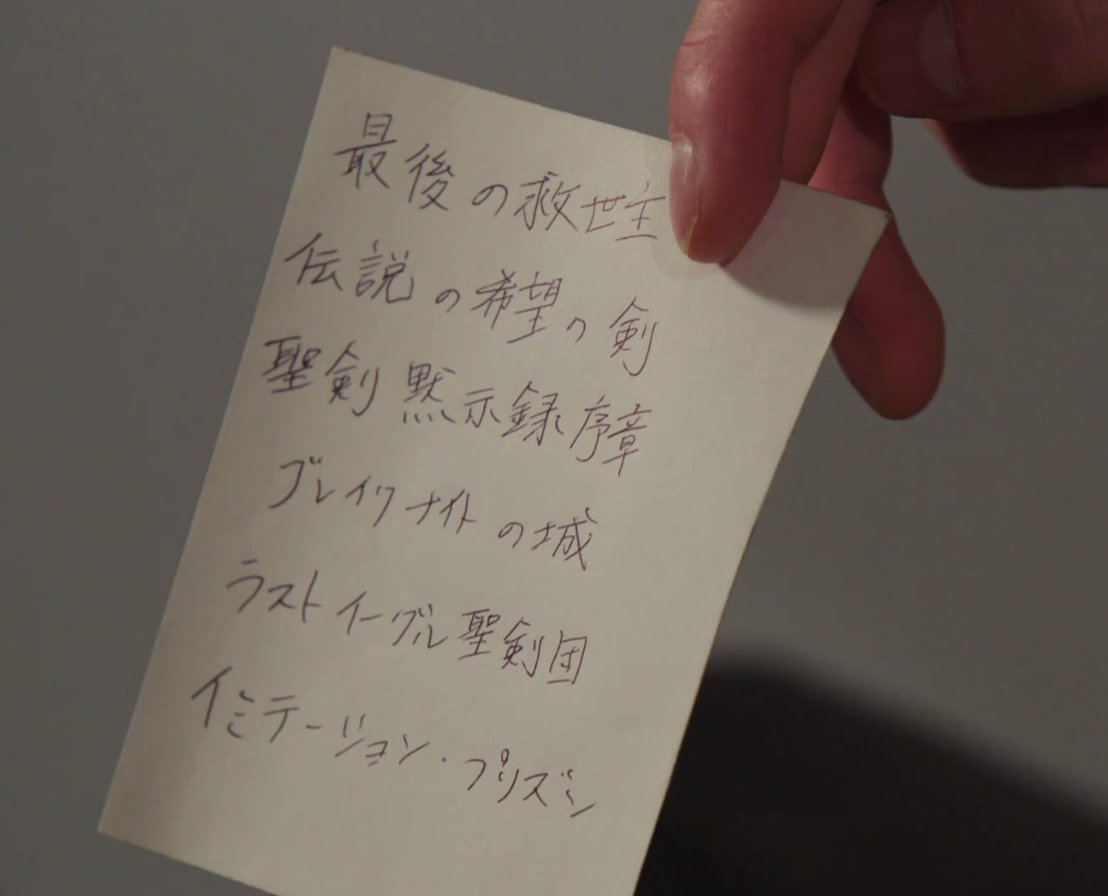 最後の救世主
伝説の希望の剣
聖剣黙示録序章
ブレイクナイトの城
ラストイーグル聖剣団
イミテーション・プリズン